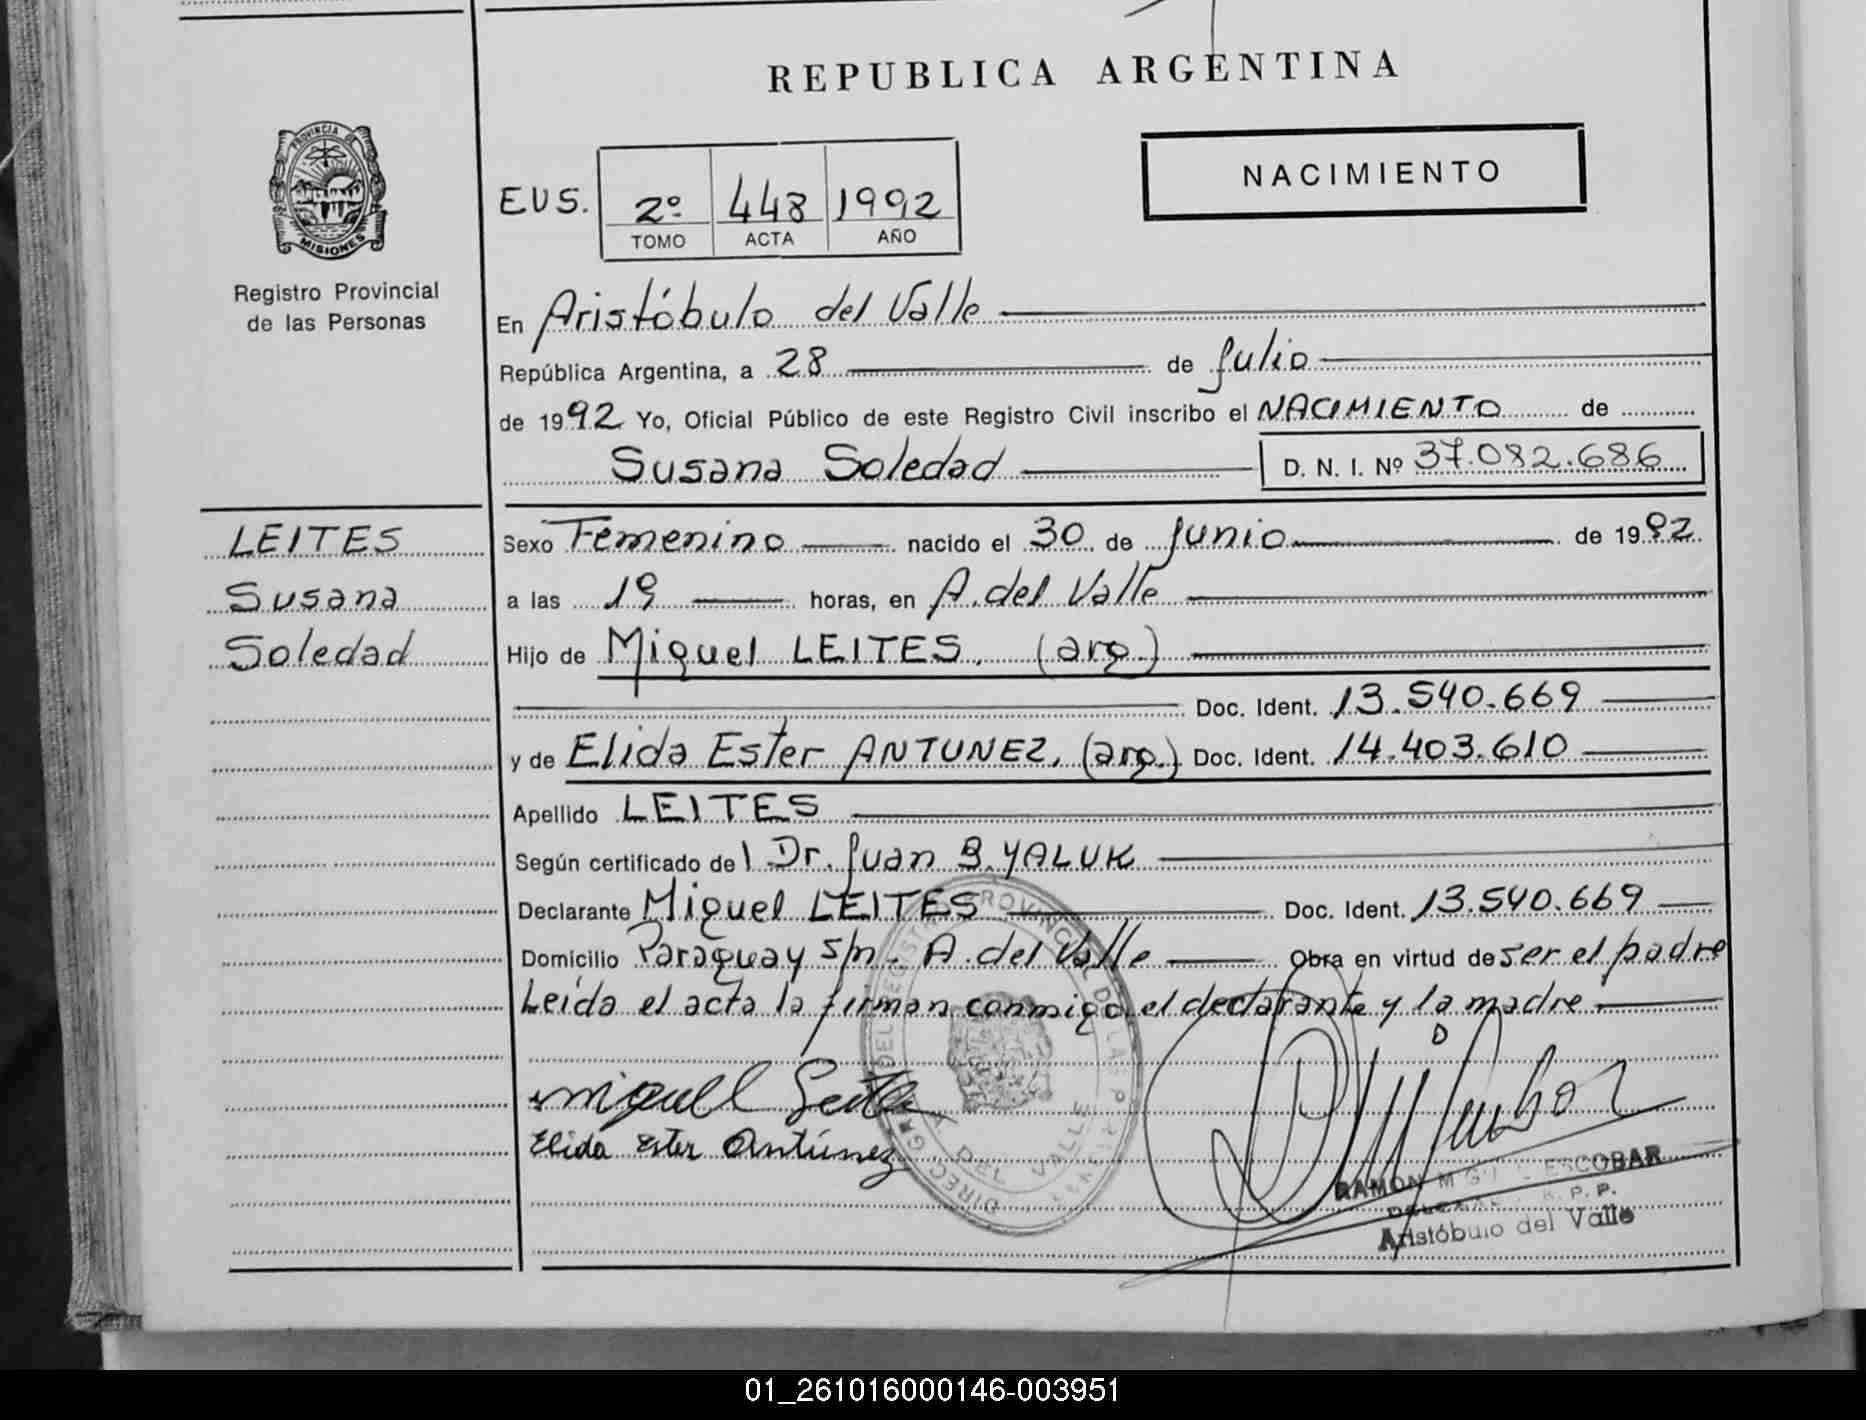 REPUBLICA ARGENTINA
PROVINCIA DE
MISIONES
Registro Provincial
de las Personas
NACIMIENTO
EUS. 2º 448 1992
TOMO ACTA AÑO
En Aristóbulo del Valle
República Argentina, a 28 de Julio
de 1992 Yo, Oficial Público de este Registro Civil inscribo el NACIMIENTO de
Susana Soledad D. N. I. Nº 37.082.686
LEITES
Susana
Soledad
Sexo Femenino nacido el 30 de Junio de 1992
a las 19 horas, en A. del Valle
Hijo de Miguel LEITES. (arg.)
Doc. Ident. 13.540.669
y de Elida Ester ANTUNEZ. (arg.) Doc. Ident. 14.403.610
Apellido LEITES
Según certificado del Dr. Juan B. YALUK
Declarante Miguel LEITES Doc. Ident. 13.540.669
Domicilio Paraguay s/n. A. del Valle Obra en virtud de ser el padre
Leída el acta la firman conmigo el declarante y la madre.
Miguel Leites
Elida Ester Antúnez
RAMON ESCOBAR
R. P. P.
Aristóbulo del Valle
DEL VALLE
01_261016000146-003951